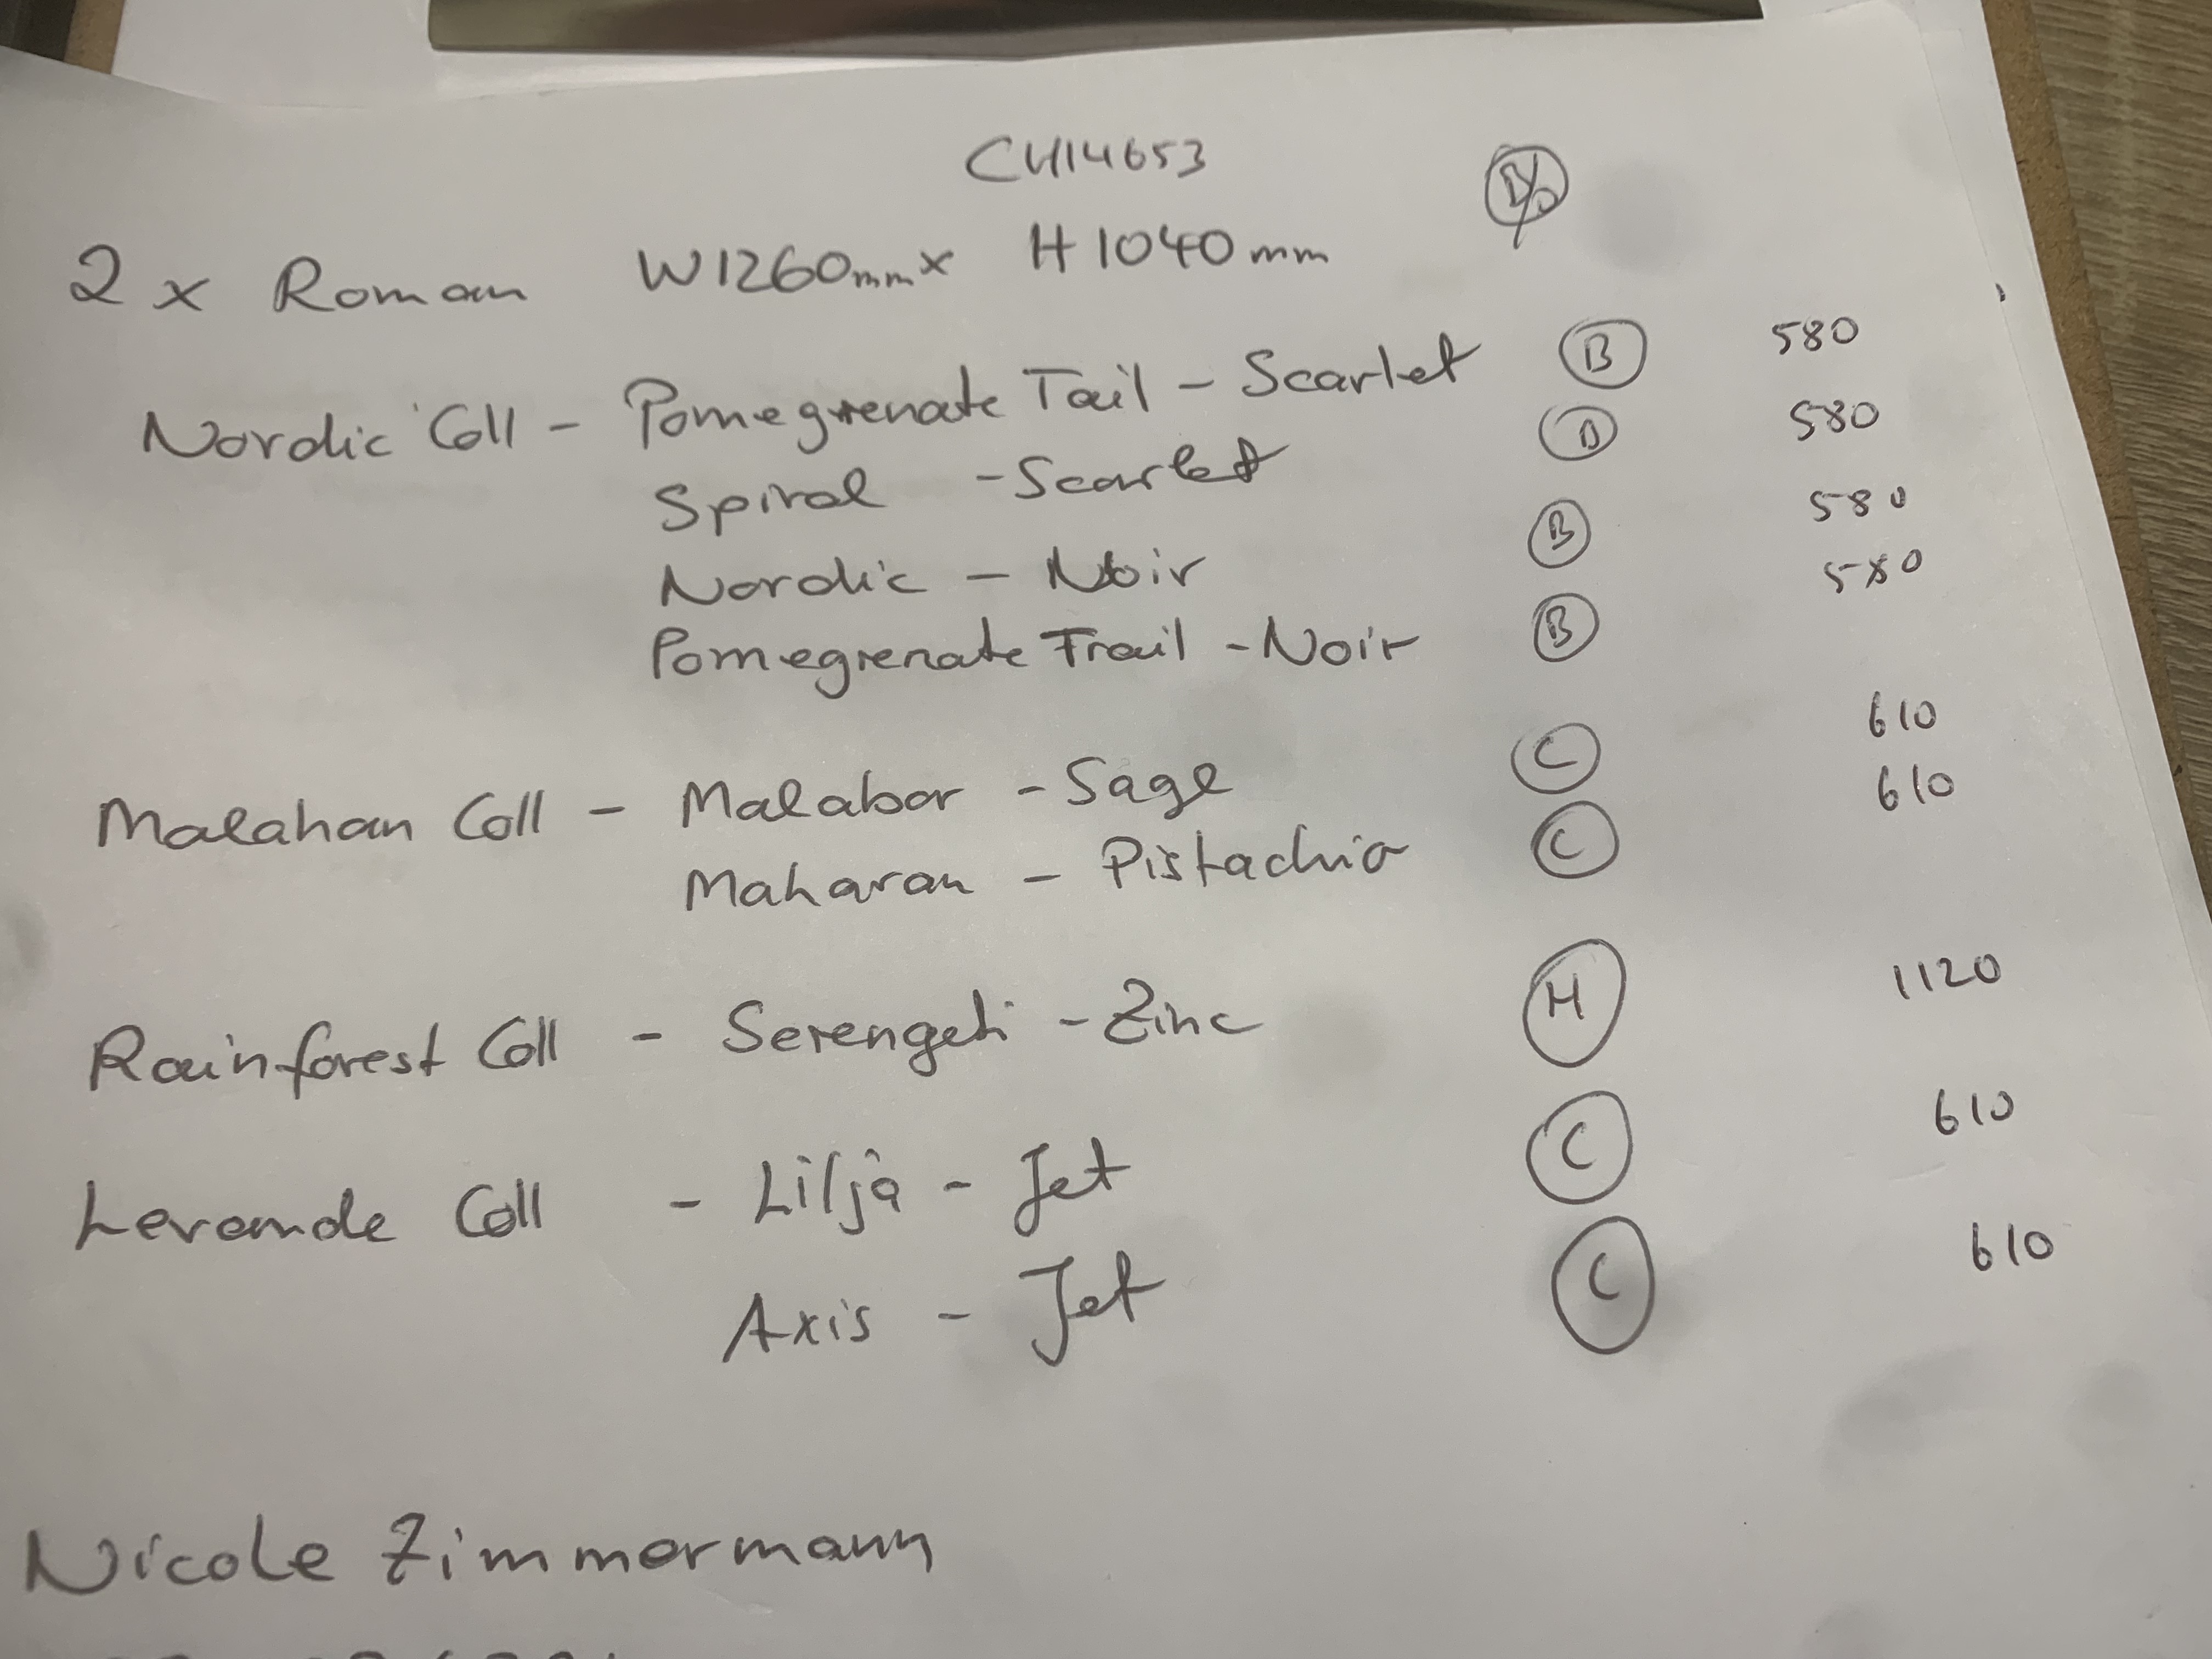 CH14653
2 x Roman W1260mm x H1040mm
Nordic Coll - Pomegrenate Tail - Scarlet B 580
Spiral - Scarlet B 580
Nordic - Noir B 580
Pomegrenate Trail - Noir B 580
Malahan Coll - Malabar - Sage C 610
Maharan - Pistachio C 610
Rainforest Coll - Serengeti - Zinc H 1120
Levande Coll - Lilja - Jet C 610
Axis - Jet C 610
Nicole Zimmermann